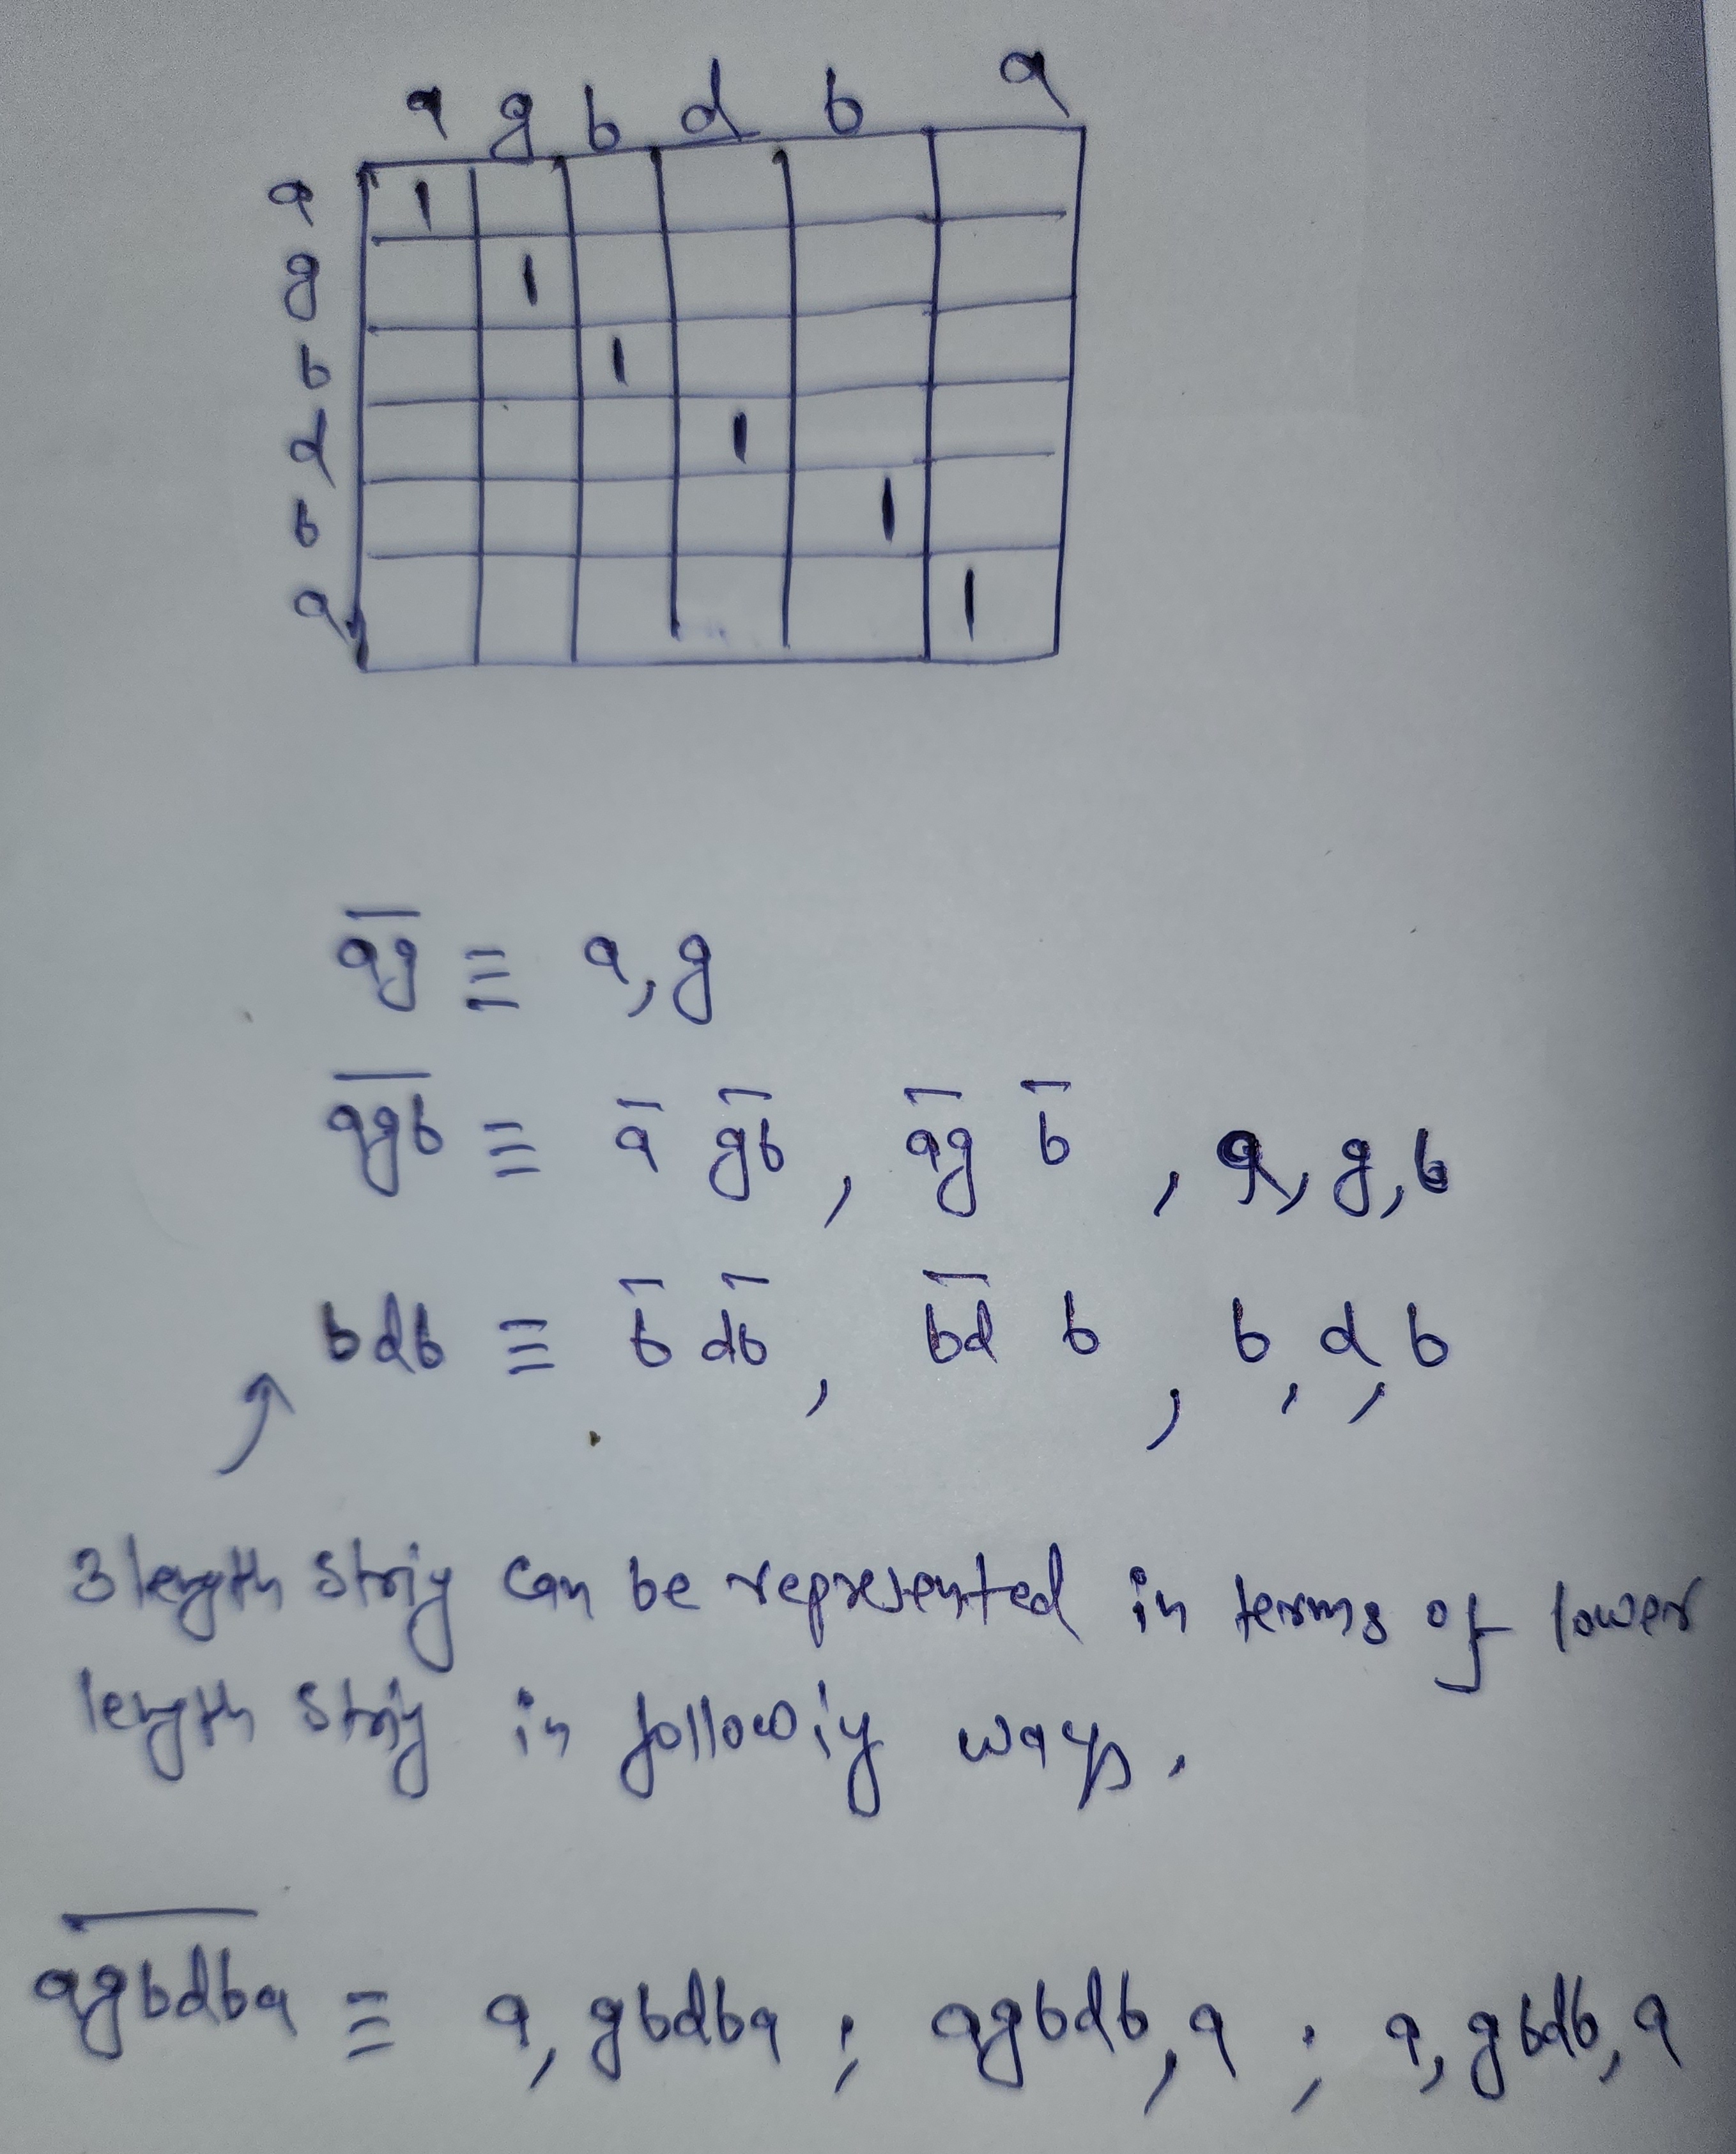 a g b d b a
a 1
g 1
b 1
d 1
b 1
a 1
a̅g̅ ≡ a, g
a̅g̅b̅ ≡ a̅ g̅b̅ , a̅g̅ b̅ , a, g, b
bdb ≡ b̅ d̅b̅ , b̅d̅ b , b, d, b
3 length string can be represented in terms of lower
length string in following ways.
a̅g̅b̅d̅b̅a̅ ≡ a, gbdba ; agbdb, a ; a, gbdb, a